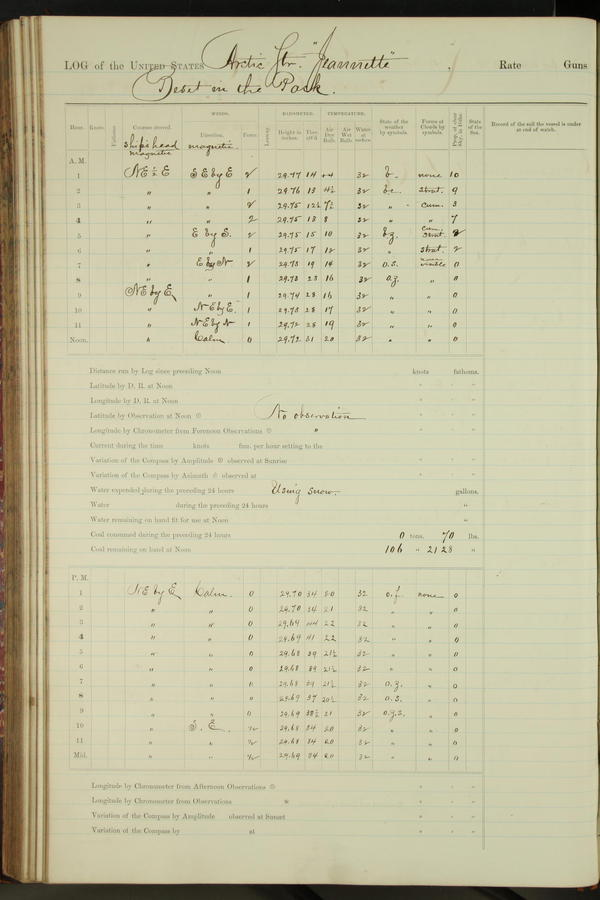 LOG of the UNITED STATES Arctic Str. "Jeannette" Rate Guns
Beset in the Pack.
WINDS. BAROMETER. TEMPERATURE.
Hour. Knots. Fathoms. Courses steered. Direction. Force. Leeway. Height in inches. Ther. att'd Air Dry Bulb. Air Wet Bulb. Water at surface. State of the weather by symbols. Forms of Clouds by symbols. Prop. of clear Sky, in 10ths. State of the Sea. Record of the sail the vessel is under at end of watch.
Ship's head magnetic magnetic
A. M.
1 NE ½ E SE by E 2 29.77 14 +4 32 b. none 10
2 " " 1 29.76 13 4½ 32 b.c. Strat. 9
3 " " 2 29.75 12½ 7½ 32 " Cum. 3
4 " " 2 29.75 13 8 32 " " 7
5 " E by S. 2 29.75 15 10 32 b.z. Cum. Strat.
6 " " 1 29.75 17 12 32 " Strat. 2
7 " E by N 2 29.73 19 14 32 o.s. none visible 0
8 " " 1 29.73 23 16 32 o.z. " 0
9 NE by E " 1 29.74 28 16 32 " " 0
10 " NE by E. 1 29.73 28 17 32 " " 0
11 " NE by N 1 29.72 28 19 32 " " 0
Noon. " Calm 0 29.72 31 20 32 " " 0
Distance run by Log since preceding Noon knots fathoms.
Latitude by D. R. at Noon
Longitude by D. R. at Noon
Latitude by Observation at Noon No observation
Longitude by Chronometer from Forenoon Observations "
Current during the time knots fms. per hour setting to the
Variation of the Compass by Amplitude observed at Sunrise
Variation of the Compass by Azimuth observed at
Water expended during the preceding 24 hours Using snow. gallons.
Water during the preceding 24 hours "
Water remaining on hand fit for use at Noon "
Coal consumed during the preceding 24 hours 0 tons. 70 lbs.
Coal remaining on hand at Noon 106 " 2128 "
P. M.
1 NE by E Calm. 0 29.70 34 20 32 o.f. none 0
2 " " 0 29.70 34 21 32 " " 0
3 " " 0 29.69 44 22 32 " " 0
4 " " 0 29.69 41 22 32 " " 0
5 " " 0 29.68 39 21½ 32 " " 0
6 " " 0 29.68 39 21½ 32 " " 0
7 " " 0 29.68 39 21½ 32 o.z. " 0
8 " " 0 29.69 37 20½ 32 o.s. " 0
9 " " 0 29.69 35½ 21 32 o.z.s. " 0
10 " S. E. ½ 29.68 34 20 32 " " 0
11 " " ½ 29.68 34 20 32 " " 0
Mid. " " ½ 29.69 34 20 32 " " 0
Longitude by Chronometer from Afternoon Observations
Longitude by Chronometer from Observations
Variation of the Compass by Amplitude observed at Sunset
Variation of the Compass by at